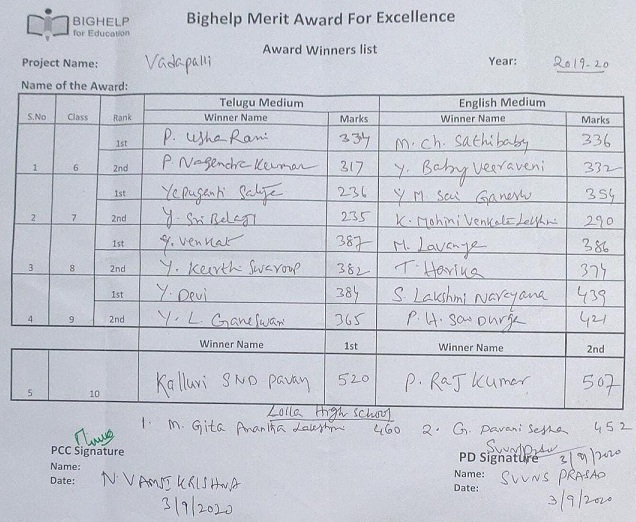 BIGHELP
for Education
Bighelp Merit Award For Excellence
Award Winners list
Project Name: Vadapalli Year: 2019-20
Name of the Award:
Telugu Medium English Medium
S.No Class Rank Winner Name Marks Winner Name Marks
1st P. Usha Rani 334 M. Ch. Sathibaby 336
1 6 2nd P. Nagendra Kumar 317 Y. Baby Veeraveni 332
1st 236 Y M. Sai Ganesh 354
2 7 2nd Y. Sri Belagi 235 K. Mohini Venkata Lakshmi 290
1st Y. Venkat 387 M. Lavanya 386
3 8 2nd Y. Keerthi Swaroop 382 T. Harika 374
1st Y. Devi 384 S. Lakshmi Narayana 439
4 9 2nd Y. L Ganeswari 365 P. H. Sai Durga 421
Winner Name 1st Winner Name 2nd
5 10 Kalluri SND Pavan 520 P. Raj Kumar 507
Lolla High School
1. M. Gita Ananta Lakshmi 460 2. G. Pavani Sesha 452
PCC Signature PD Signature 3/9/2020
Name: N. VAMSI KRISHNA Name: SVVNS PRASAD
Date: 3/9/2020 Date: 3/9/2020